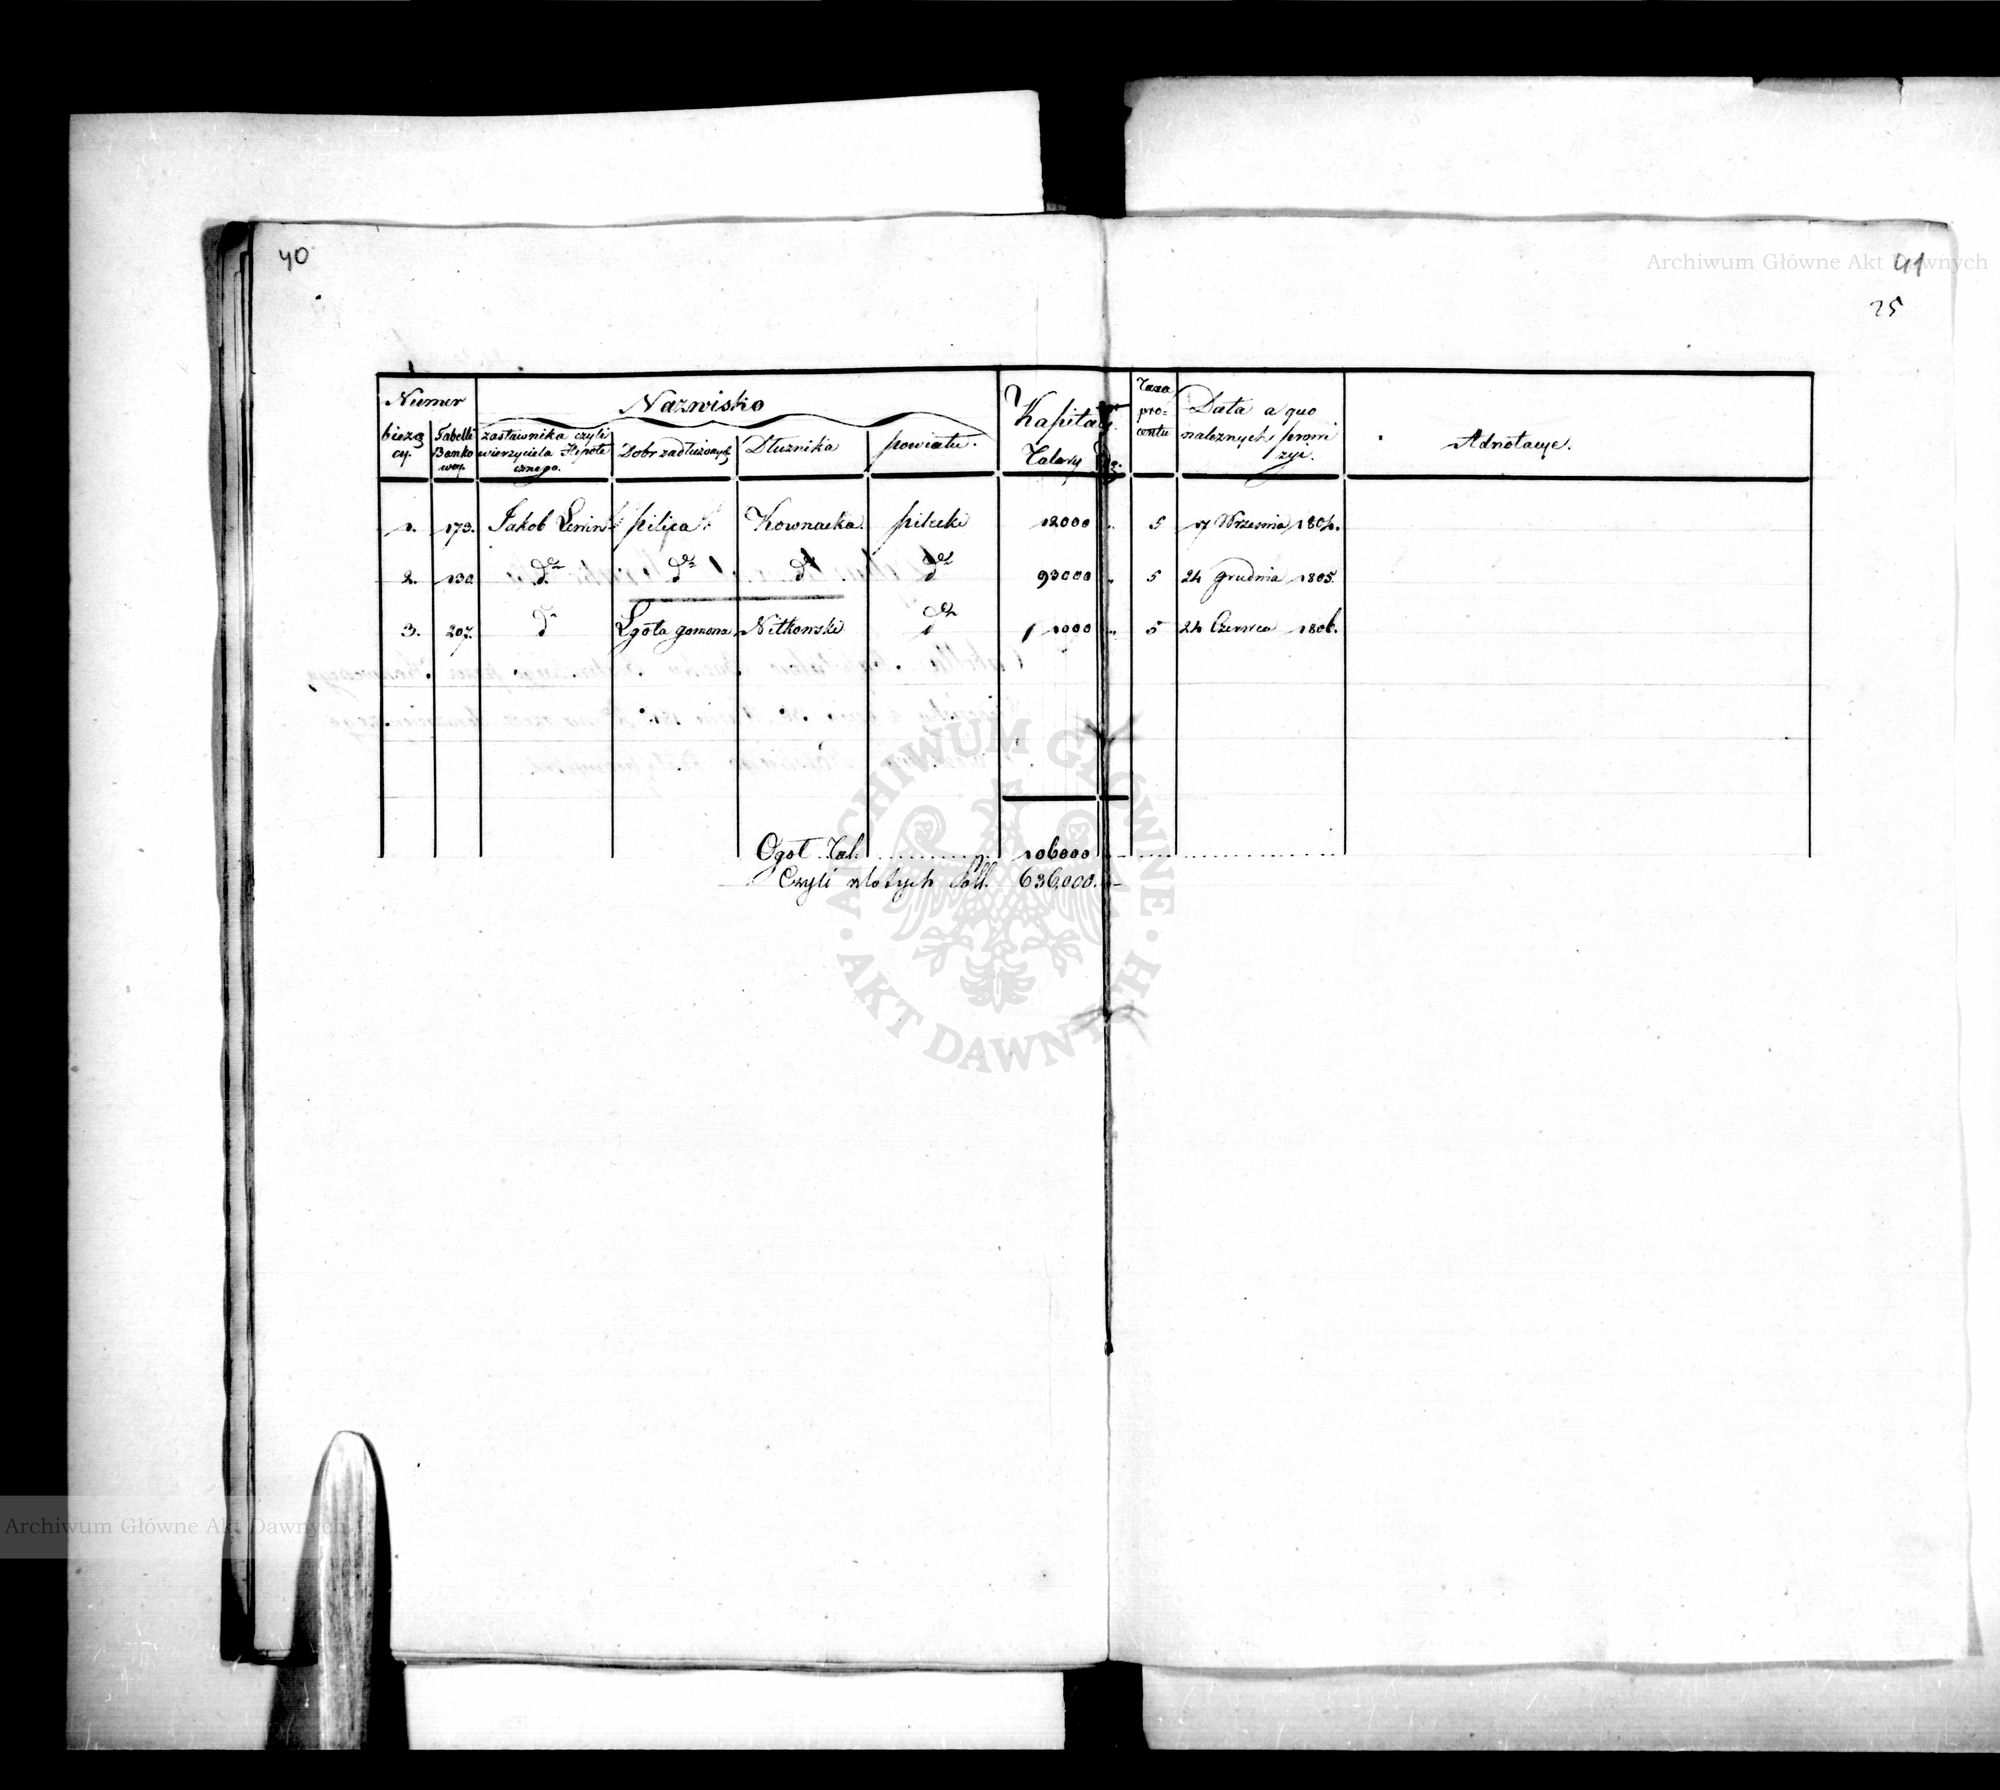 40
41
25
Numer
Nazwisko
Kapitały.
Taxa procentu
Data a quo należnych prowizyi.
Adnotacye.
bieżący.
Tabelli Bankowey.
zastawnika czyli wierzyciela Hipotecznego.
Dobr zadłużonych
Dłużnika
powiatu.
Talary
1. 173. Jakob Lewin pilica Kownacka pilecki 12000 " 5 17 Września 1804.
2. 130. do do do do 93000 " 5 24 Grudnia 1805.
3. 207. do Lgota Nitkowski do 1000 " 5 24 Czerwca 1806.
Ogoł Tal. 106000
Czyli złotych Poll. 636,000.
Archiwum Główne Akt Dawnych
ARCHIWUM GŁÓWNE · AKT DAWNYCH ·
Archiwum Główne Akt Dawnych